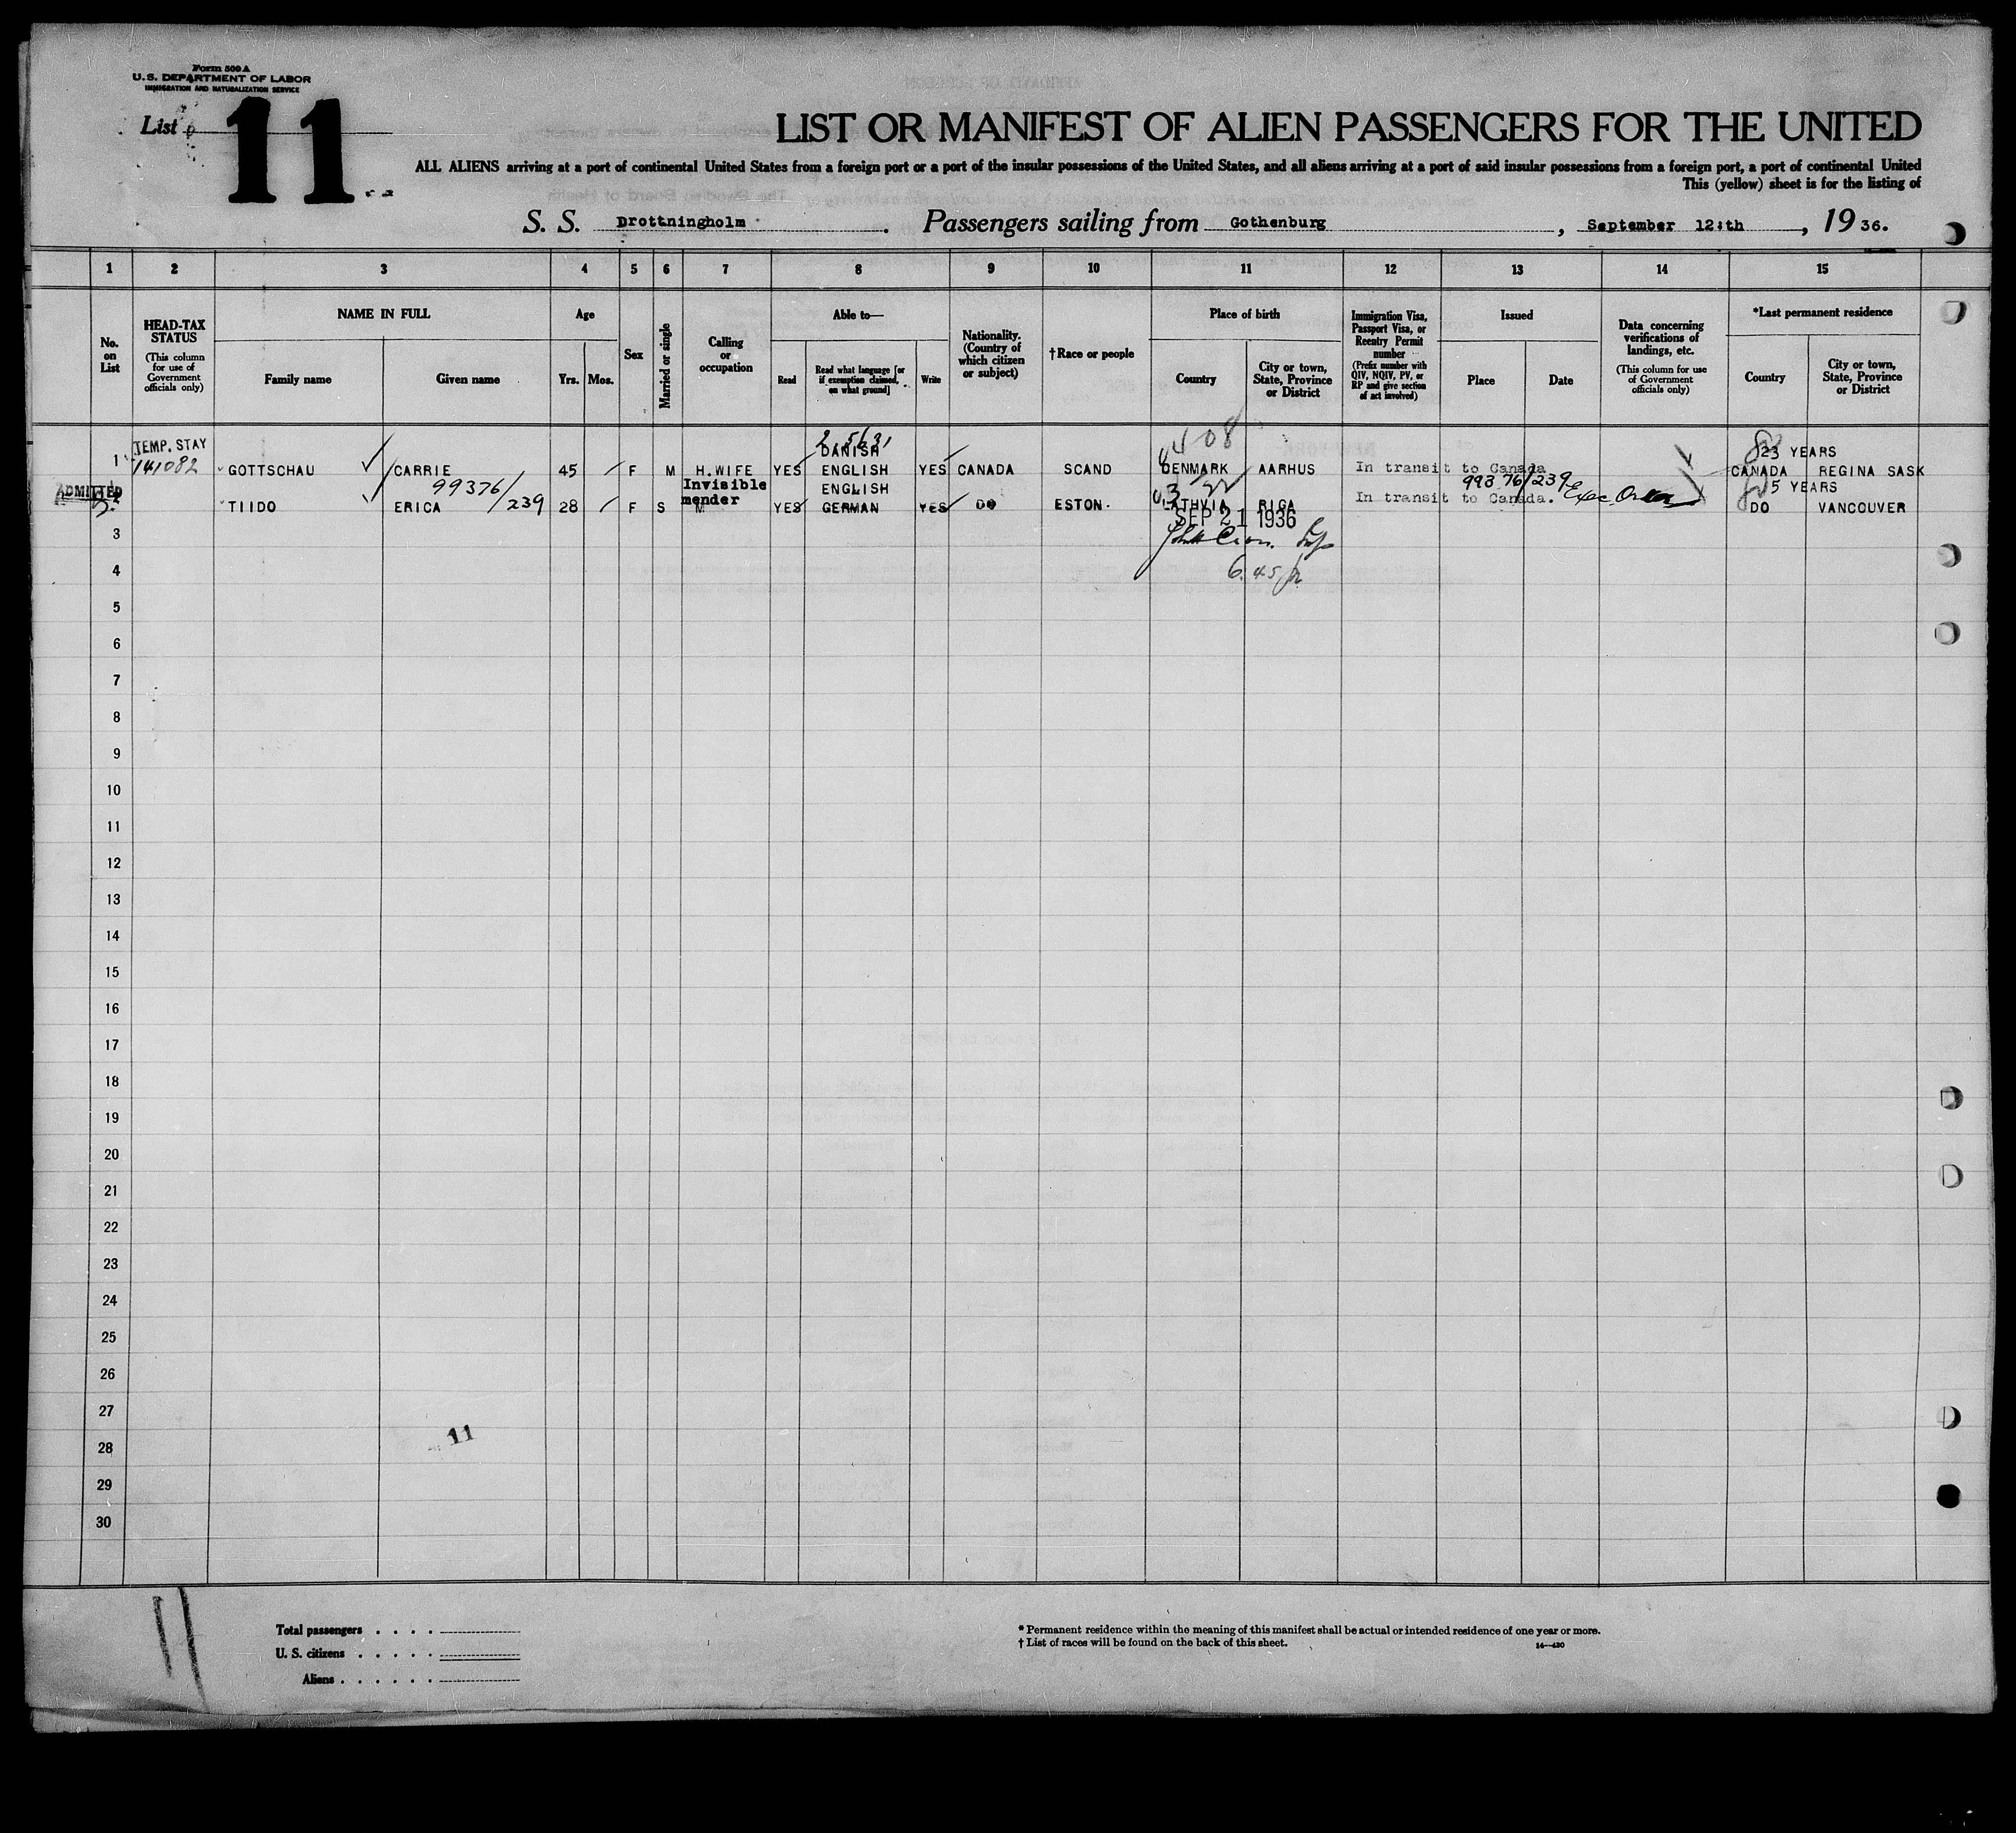 Form 500 A
U.S. DEPARTMENT OF LABOR
IMMIGRATION AND NATURALIZATION SERVICE
List 11
LIST OR MANIFEST OF ALIEN PASSENGERS FOR THE UNITED
ALL ALIENS arriving at a port of continental United States from a foreign port or a port of the insular possessions of the United States, and all aliens arriving at a port of said insular possessions from a foreign port, a port of continental United
This (yellow) sheet is for the listing of
S. S. Drottningholm . Passengers sailing from Gothenburg , September 12:th , 19 36.
1 2 3 4 5 6 7 8 9 10 11 12 13 14 15
No. on List
HEAD-TAX STATUS
(This column for use of Government officials only)
NAME IN FULL
Family name Given name
Age
Yrs. Mos.
Sex
Married or single
Calling or occupation
Able to—
Read
Read what language [or if exemption claimed, on what ground]
Write
Nationality. (Country of which citizen or subject)
†Race or people
Place of birth
Country
City or town, State, Province or District
Immigration Visa, Passport Visa, or Reentry Permit number
(Prefix number with QIV, NQIV, PV, or RP and give section of act involved)
Issued
Place Date
Data concerning verifications of landings, etc.
(This column for use of Government officials only)
*Last permanent residence
Country
City or town, State, Province or District
TEMP. STAY DANISH 408 23 YEARS
1 141082 GOTTSCHAU CARRIE 45 F M H.WIFE YES ENGLISH YES CANADA SCAND DENMARK AARHUS In transit to Canada CANADA REGINA SASK
ADMITTED 99376/239 Invisible ENGLISH 99376/239 5 YEARS
TIIDO ERICA 28 F S mender YES GERMAN YES DO ESTON. LATHVIA RIGA In transit to Canada. Exec Order DO VANCOUVER
SEP 21 1936
3
4 6.45
5
6
7
8
9
10
11
12
13
14
15
16
17
18
19
20
21
22
23
24
25
26
27
11
28
29
30
11
Total passengers . . . .
U. S. citizens . . . . .
Aliens . . . . . .
* Permanent residence within the meaning of this manifest shall be actual or intended residence of one year or more.
† List of races will be found on the back of this sheet.
14—430